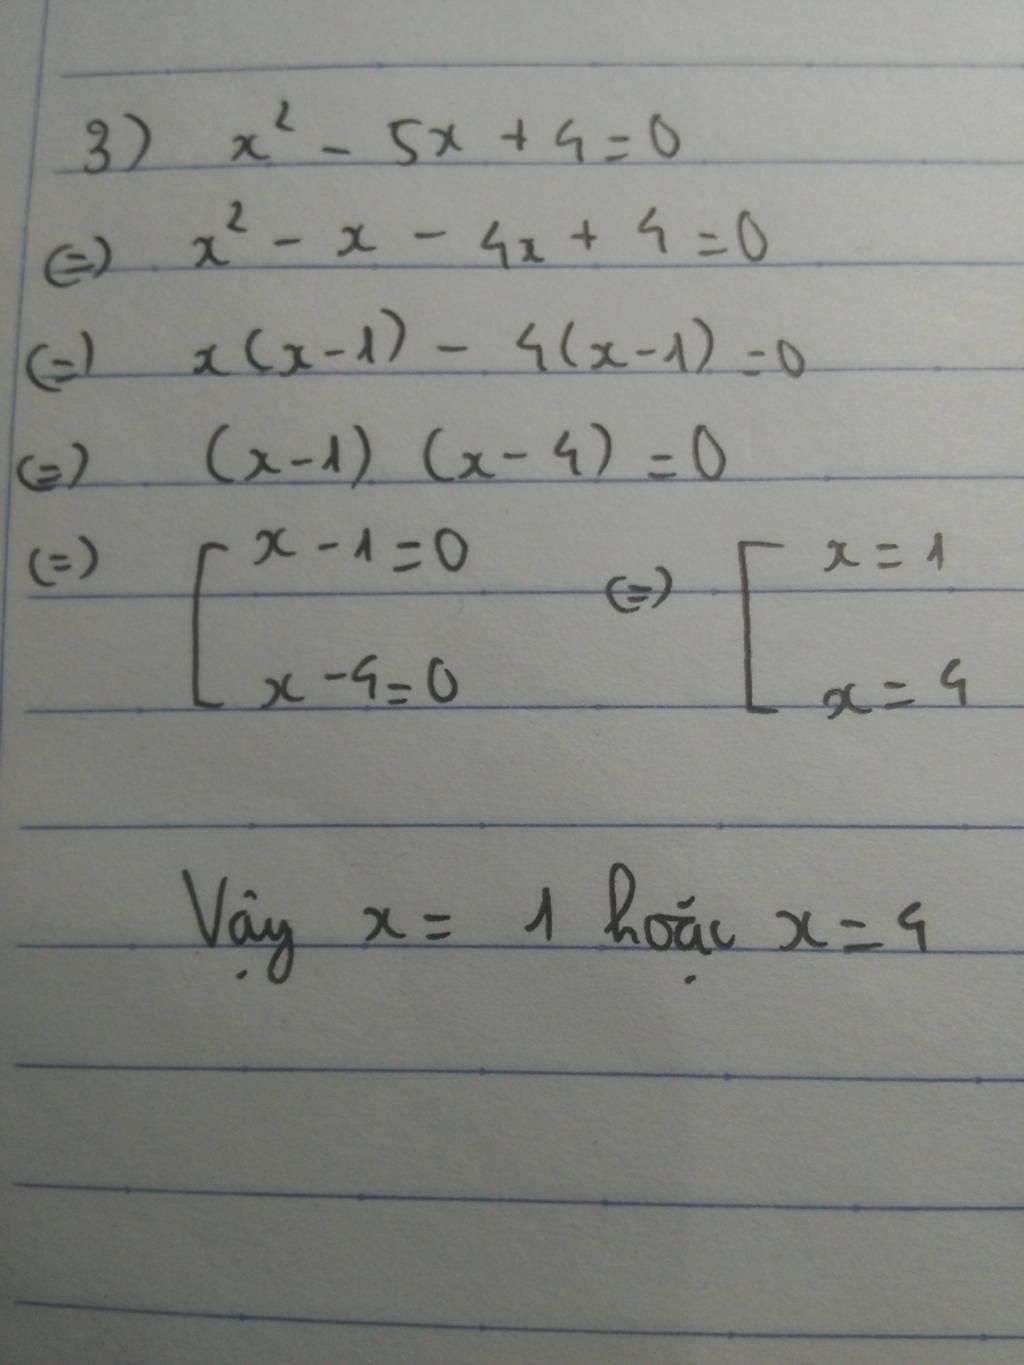 3) x² - 5x + 4 = 0
(=) x² - x - 4x + 4 = 0
(=) x(x-1) - 4(x-1) = 0
(=) (x-1) (x-4) = 0
(=) [ x - 1 = 0 (=) [ x = 1
x - 4 = 0 x = 4
Vậy x = 1 hoặc x = 4